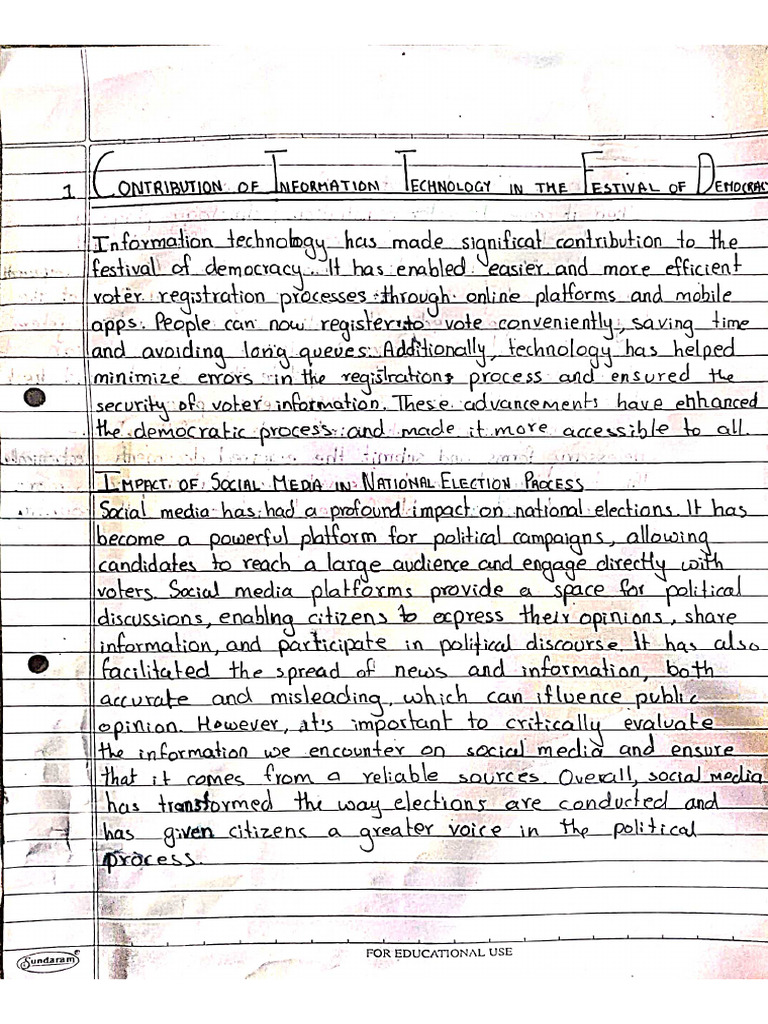 1 CONTRIBUTION OF INFORMATION TECHNOLOGY IN THE FESTIVAL OF DEMOCRACY
Information technology has made significal contribution to the
festival of democracy. It has enabled easier and more efficient
voter registration processes through online platforms and mobile
apps. People can now register to vote conveniently, saving time
and avoiding long queues. Additionally, technology has helped
minimize errors in the registration process and ensured the
security of voter information. These advancements have enhanced
the democratic process and made it more accessible to all.
IMPACT OF SOCIAL MEDIA IN NATIONAL ELECTION PROCESS
Social media has had a profound impact on national elections. It has
become a powerful platform for political campaigns, allowing
candidates to reach a large audience and engage directly with
voters. Social media platforms provide a space for political
discussions, enablng citizens to express their opinions, share
information, and participate in political discourse. It has also
facilitated the spread of news and information, both
accurate and misleading, which can ifluence public
opinion. However, it's important to critically evaluate
the information we encounter on social media and ensure
that it comes from a reliable sources. Overall, social media
has transformed the way elections are conducted and
has given citizens a greater voice in the political
process.
Sundaram
FOR EDUCATIONAL USE